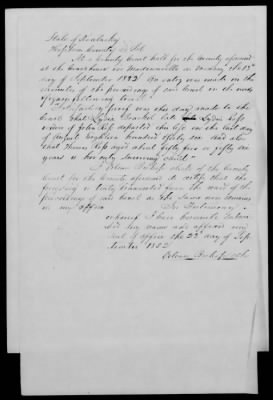 State of Kentucky
Hopkins County Sct
At a County Court held for the County aforesaid
at the Courthouse in Madisonville on Monday the 13th
day of September 1852 An entry was made in the
minutes of the proceedings of said Court in the words
figures following towit
Satisfactory proof was this day made to the
Court that Lydia late Lydia Ross
widow of John Ross departed this life on the last day
of August Eighteen hundred fifty and also
that Ross aged about fifty five or fifty six
years is her only surviving child
I Bishop clerk of the County
Court for the County aforesaid do certify that the
foregoing is truly transcribed from the
proceedings of said Court as the same now remains
in my office
In Testimony
whereof I have hereunto Subscri
bed my name and affixed my
Seal of office the 23d day of Sep
tember 1852